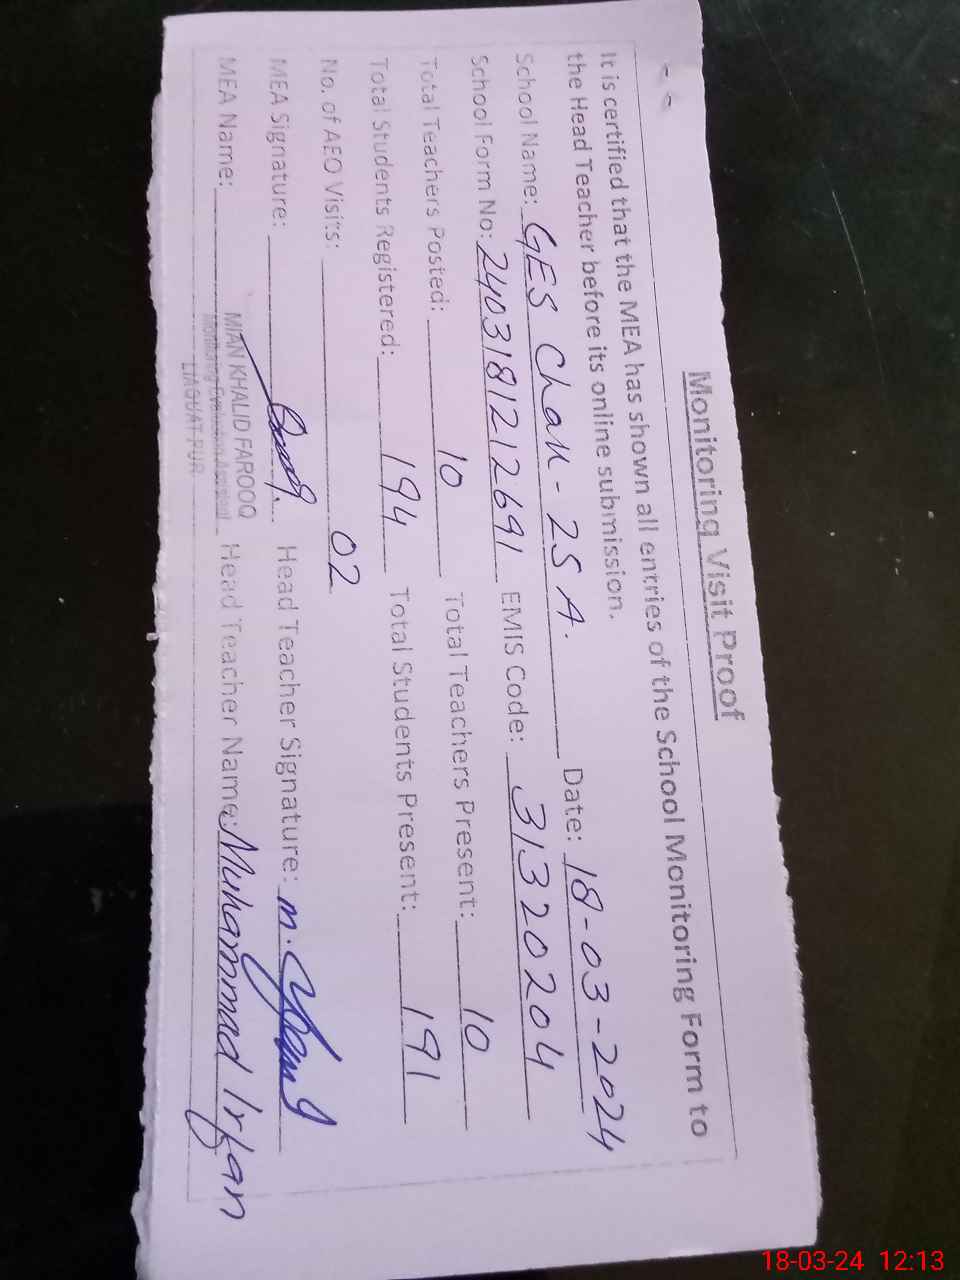 Monitoring Visit Proof
It is certified that the MEA has shown all entries of the School Monitoring Form to
the Head Teacher before its online submission.
School Name: GES Chak-25A. Date: 18-03-2024
School Form No: 2403181212691 EMIS Code: 31320204
Total Teachers Posted: 10 Total Teachers Present: 10
Total Students Registered: 194 Total Students Present: 191
No. of AEO Visits: 02
MEA Signature: Head Teacher Signature: M.
MEA Name: MIAN KHALID FAROOQ Head Teacher Name: Muhammad Irfan
Monitoring Evaluation Assistant
LIAQUAT PUR
18-03-24 12:13